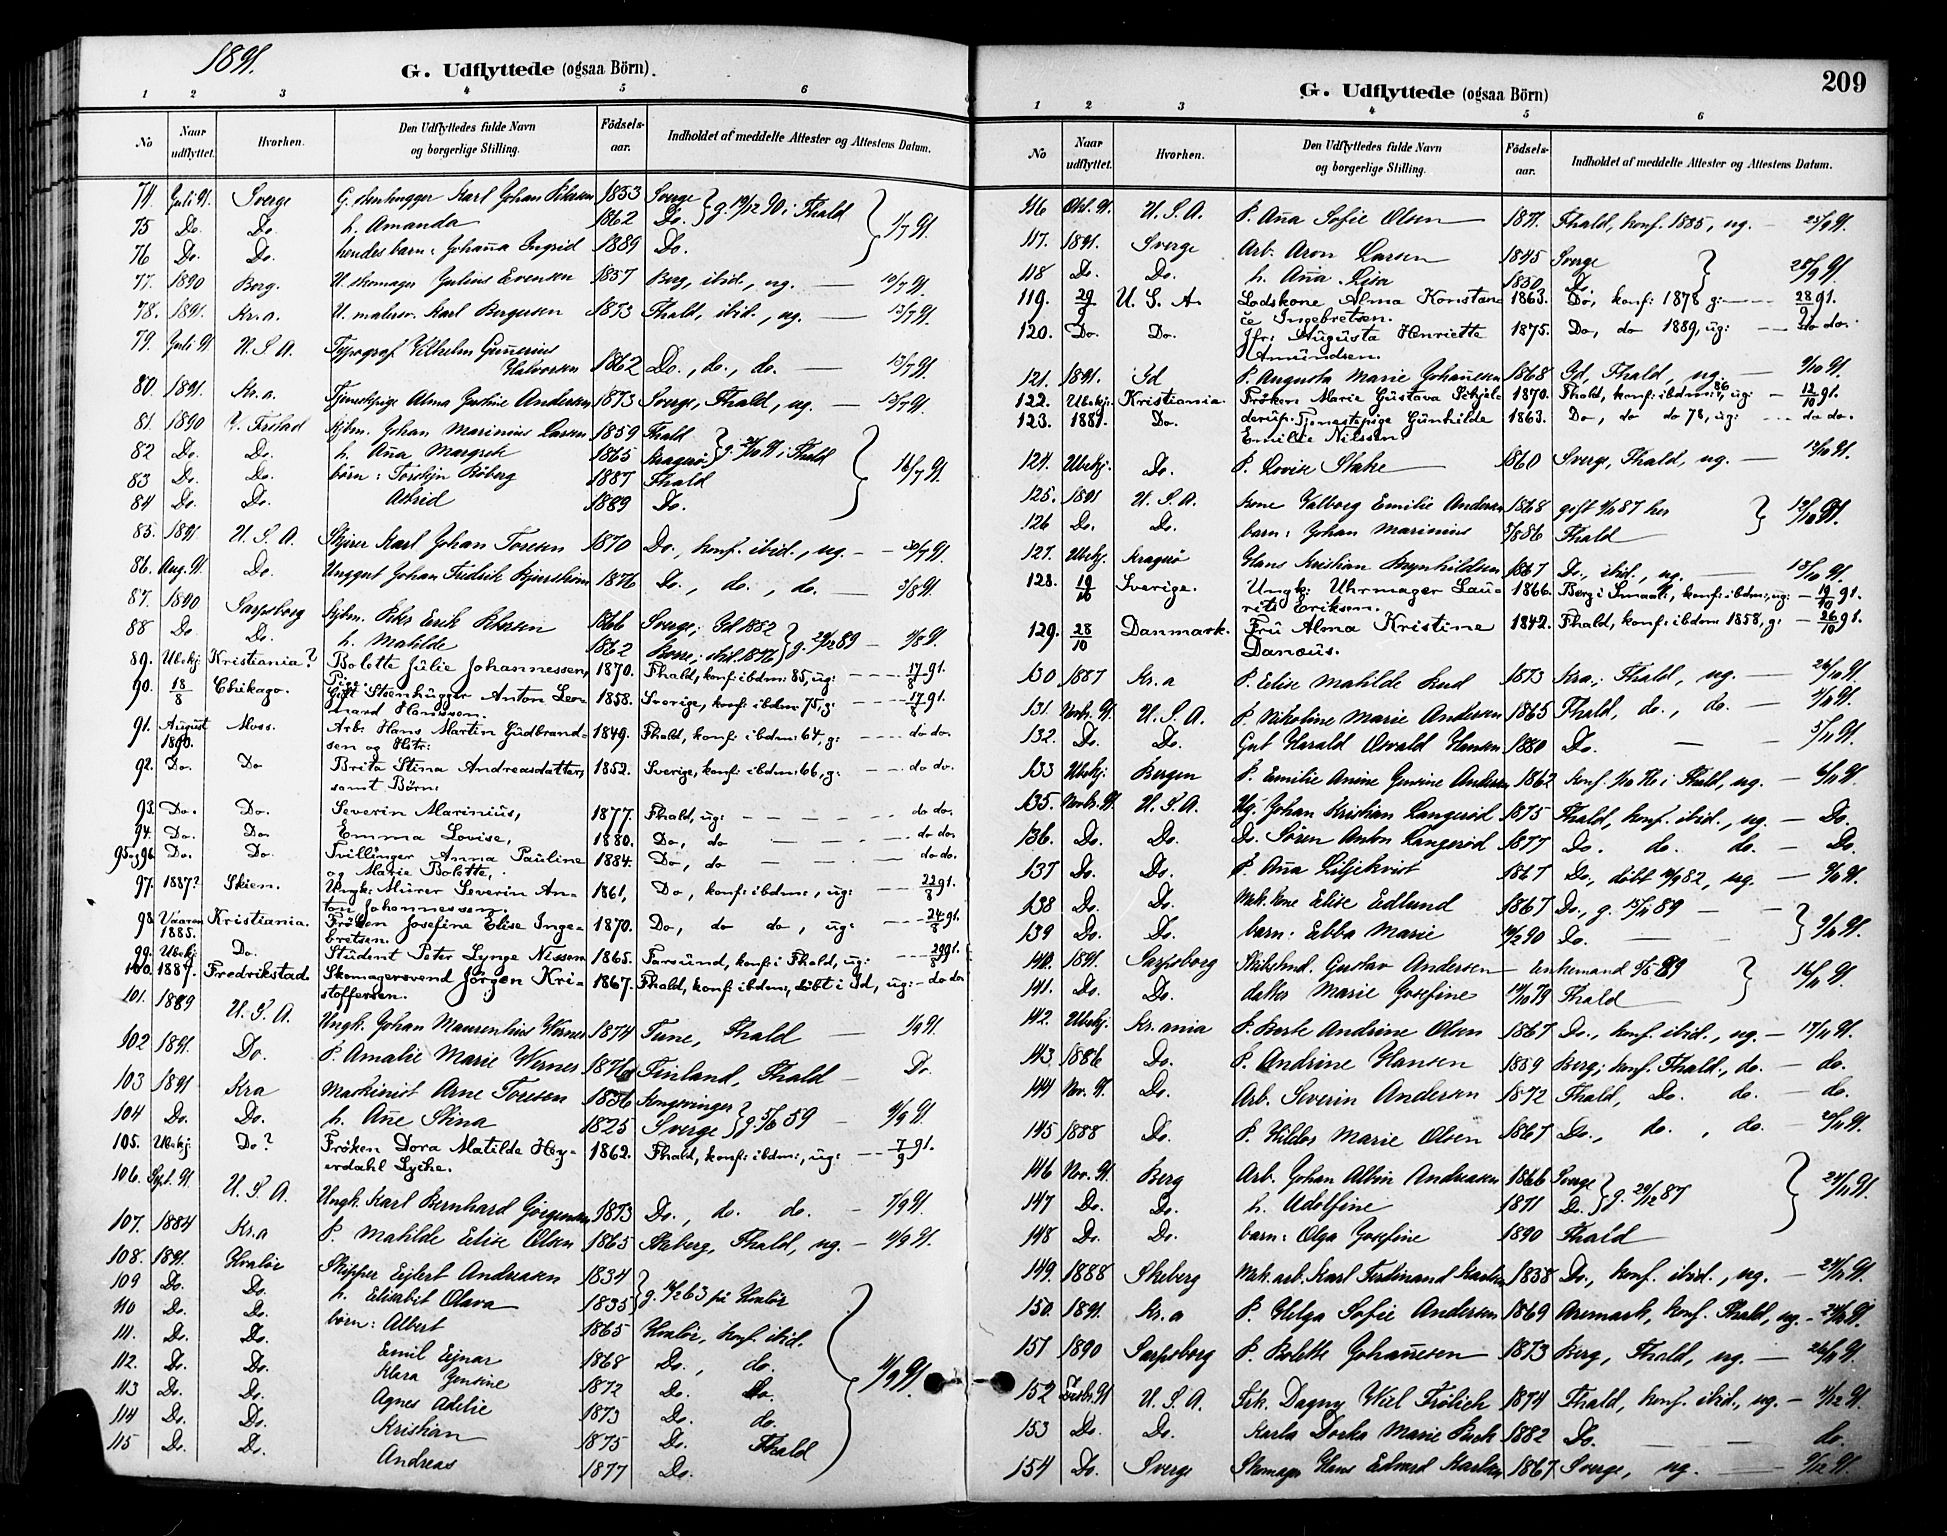 1891.
G. Udflyttede (ogsaa Börn).
1 2 3 4 5 6
No Naar udflyttet. Hvorhen. Den Udflyttedes fulde Navn og borgerlige Stilling. Födsels-aar. Indholdet af meddelte Attester og Attestens Datum.
74. Juli 91. Sverge G. stenhugger Karl Johan Petersen 1853 Sverge } g. 19/12 90 i Fhald } 1/7 91.
75 Do. Do. h. Amanda 1862 Do.
76 Do. Do. hendes barn: Johan̄a Ingrid 1889 Do.
77. 1890 Berg. U. skomager Julius Evensen 1857 Berg, ibid., ug. —
78. 1891. Kr.a. U. maler Karl Bergersen 1873 Fhald, ibid., ug. — 13/7 91.
79. Juli 91 U.S.A. Typograf Vilhelm Gunerius
Halvorsen 1862 Do., do., do. — 13/7 91.
80. 1891. Kr.a. Tjenestepige Alma Justine Andersen 1873 Sverge, Fhald, ug. —
81. 1890 Johan Marinius Larsen 1859 Fhald
82 Do. Do. h. An̄a Margrete 1865 Kragerø } i Fhald } 16/7 91.
83 Do. Do. börn: Torstejn Röberg 1887 Fhald
84 Do. Do. Astrid 1889 Do.
85. 1891. U.S.A. Karl Johan Toresen 1870 Do., konf. ibid., ug. —
86. Aug. 91. Do. Unggut Johan Fredrik Bjurstrøm 1876 Do., do., do. — 3/8 91.
87. 1890 Sarpsborg Kjbm. Peter Erik Petersen 1866 Sverge; Id 1882
88 Do. Do. h. Matilde 1862 Borre; ibid. 1876
89. Ubekj. Kristiania? Bolette Julie Johannessen, Pige. 1870. Fhald, konf: ibdm: 85, ug: — 17/8 91.
90. 18/8 Chikago. Gift Steenhugger Anton Leonard Hanssen. 1858. Sverige, konf: ibdm: 75, g: — 17/8 91.
91. August 1890. Moss. Arb: Hans Martin Gudbrandsen og Hstr: 1849. Fhald, konf: ibdm: 64, g: — do do.
92. Do. Do Brita Stina Andreasdatter, samt Børn: 1852. Sverige, konf: ibdm: 66, g: — do do.
93. Do. Do. Severin Marinius, 1877. Fhald, ug: — do do.
94. Do. Do. Emma Lovise, 1880. Do, do — do do.
95 og 96. Do. Do. Tvillinger Anna Pauline og Marie Bolette, 1884. Do, do — do do.
97. 1887? Skien. Ungk: Mürer Severin Anton Johannessen 1861, Do, konf: ibdm:, ug: — 22/8 91.
98. Vaaren 1885. Kristiania. Frøken Josefine Elise Ingebretsen. 1870. Do, do do, ug: — 24/8 91.
99. Ubekj: Do. Student Peter Lynge Nissen 1865. Farsund, konf: i Fhald, ug: —
100. 1887. Fredrikstad Skomagersvend Jörgen Kristoffersen. 1867. Fhald, konf: ibdm:, döbt i Id, ug: — do do
101. 1889 U.S.A. Ungk. Johan Maurentius Wernes 1874 Tune, Fhald — 1/9 91.
102 1891. Do. P. Amalie Marie Wernes 1876 Finland, Fhald — Do.
103 1891 Kra Maskinist Arne Toresen 1836 Kongsvinger
104 Do. Do. h. An̄e Stina 1825 Sverge
105. Ubekj Do? Frøken Dora Matilde Heyerdahl Lyche. 1862. Fhald, konf: ibdm:, ug: — 7/9 91.
106. Sept. 91 U.S.A. Ungk. Karl Bernhard Jörgensen 1873 Do., do. do. — 7/9 91.
107. 1884 Kr.a P. Matilde Elise Olsen 1865 Skeberg, Fhald, ug. —
108. 1891. Hvalør Skipper Ejlert Andreasen 1834
109 Do. Do. h. Elisabet Olava 1835 på Hvalør
110 Do. Do. börn: Albert 1865 Hvalør, konf. ibid.
111. Do. Do. Emil Ejnar 1868 Do., do.
112. Do. Do. Klara Jentine 1872 Do. Do.
113 Do. Do. Agnes Adelie 1873 Do. do.
114 Do. Do. Kristian 1875 Do. Fhald
115 Do. Do. Andreas 1877 Do.
209
G. Udflyttede (ogsaa Börn)
1 2 3 4 5 6
No Naar udflyttet. Hvorhen. Den Udflyttedes fulde Navn og borgerlige Stilling. Födsels-aar. Indholdet af meddelte Attester og Attestens Datum.
116 Okt. 91. U.S.A. P. An̄a Sofie Olsen 1871. Fhald, konf. 1885, ug. — 25/9 91.
117. 1891. Sverge Arb. Aron Larsen 1845 Sverge
118 Do. Do. h. An̄a Lisa 1850 Do.
119. 29/9 U.S.A. Lodskone Alma Konstance Ingebretsen. 1863. Do, konf: 1878 g: — 28/9 91.
120. Do. Do. Jfr: Augusta Henriette Amundsen. 1875. Do, do 1889, ug: — do do.
121. 1891. Id P. Augusta Marie Johan̄esen 1868 Id, Fhald, ug. — 9/10 91.
122. Ubekj. Kristiania. Frøken Marie Gustava Schjelderup. 1870. Fhald, konf: ibdm: 86, ug: — 12/10 91.
123. 1881. Do. Tjenestepige Gunhilde Emilie Nilssen 1863. Do, do do 78, ug: — do do.
124. Ubekj. Do. P. Lovise Stake 1860 Sverge, Fhald, ug. —
125. 1891 U.S.A. kone Valborg Emilie Andersen 1868 gift 87 her } 12/10 91.
126 Do. Do. barn: Johan Marinius 86 Fhald
127. Ubekj. Kragerø Hans Kristian Brynhildsen 1867 Do., ibid., ug. — 13/10 91.
128. 19/10 Sverige. Ungk: Uhrmager Laurits Eriksen. 1866. Berg i Smaal:, konf: ibdm:, ug: — 19/10 91.
129. 28/10 Danmark. Fru Alma Kristine Danæus. 1842. Fhald, konf: ibdm: 1858, g: — 26/10 91.
130 1887 Kr.a P. Elise Matilde Lund 1873 Kra.; Fhald, ug. — 26/10 91.
131. Novbr. 91. U.S.A. P. Nikoline Marie Andersen 1865 Fhald, do., do. —
132. Do. Do. Gut Harald Osvald Hansen 1880 Do. — 5/11 91.
133 Ubekj. Bergen P. Emilie Anine Jensine Andersen 1862 konf. 76 i Fhald, ug. —
135. Novbr. 91 U.S.A. Ug. Johan Kristian Langerød 1875 Fhald, konf. ibid., ug. — Do.
136. Do. Do. Do. Søren Anton Langerød 1877 Do. do. do. — Do.
137 Do. Do. P. An̄a Liljekvist 1867 Do., döbt 82, ug. —
138 Do. Do. Mek. kone Elise Edlund 1867 Do., g. 15/11 89 —
139 Do. Do. barn: Ebba Marie 90 Do. —
140. 1891. Sarpsborg Gustav Andersen — Enkemand 89
141. Do. Do. datter Marie Josefine 79 Fhald — } 16/11 91.
142. Ubekj. Kr.ania P. Andrine Olsen 1867 Do., konf. ibid., ug. — 17/11 91.
143. 1886 Do. P. Andrine Hansen 1859 Berg; konf. Fhald., do. — do.
144 Nov. 91. Do. Arb. Severin Andersen 1872 Fhald, Do. do. — do.
145 1888 Do. P. Hilda Marie Olsen 1867 Do., do., do. — 20/11 91.
146 Nov. 91. Berg Arb. Johan Albin Andreasen 1866 Sverge
147 Do. Do. h. Adolfine 1871 Do.
148 Do. Do. barn: Olga Josefine 1890 Fhald —
149. 1888 Skeberg Mek. arb. Karl Ferdinand Karlsen 1858 Do., konf. ibid., ug. — 24/11 91.
150. 1891. Kr.a P. Helga Sofie Andersen 1869 Aremark, konf. Fhald, ug. — 24/11 91.
151 1890 Sarpsborg P. Bolette Johan̄esen 1873 Berg, Fhald, ug. — 26/11 91.
152 Desbr. 91 U.S.A. Frk. Dagny Wiel Frölich 1874 Fhald, konf. ibid., ug. —
153 Do. Do. Karla Dorthea Marie Bach 1882 Do. — do.
154 Do. Sverge Skomager Hans Edvard Karlsen 1867 Sverge, ug. —